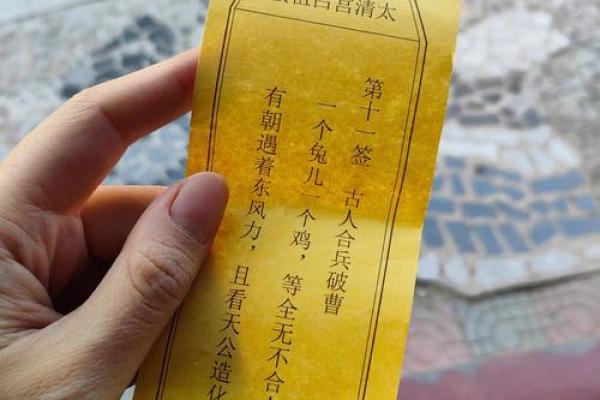 太清宫吕祖
第十一签 古人合兵破曹
一个兔儿一个鸡，等全无不合
有朝遇着东风力，且看天公造化